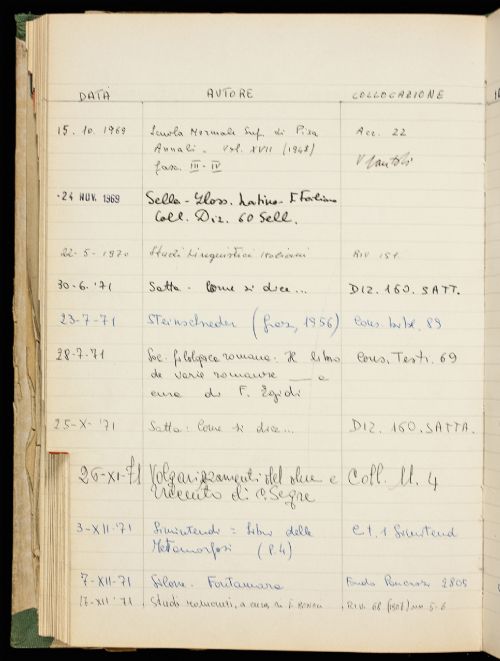 DATA AUTORE COLLOCAZIONE
15. 10. 1969 Scuola Normale Sup. di Pisa Acc. 22
Annali - Vol. XVII (1948)
fasc. III - IV
-24 NOV. 1969 Sella - Gloss. Latino-Italiano
Coll. Diz. 60 Sell.
22-5-1970 Studi Linguistici Italiani RIV 151
30-6-'71 Satta - Come si dice... DIZ. 160. SATT.
23-7-71 Steinschneider (Graz, 1956) Cons. bibl. 89
28-7-71 Soc. filologica romana: Il libro Cons. Testi. 69
de varie romanze — a
cura di F. Egidi
25-X-'71 Satta: Come si dice... DIZ. 160. SATTA.
26-XI-71 Volgarizzamenti del due e Coll. M. 4
trecento di C. Segre
3-XII-'71 Simintendi = Libri delle C.t. 1 Simintend
Metamorfosi (P. 4)
7-XII-71 Silone - Fontamara Fondo 2805
17-XII '71 Studi romanzi, a cura di E. Monaci RIV. 68